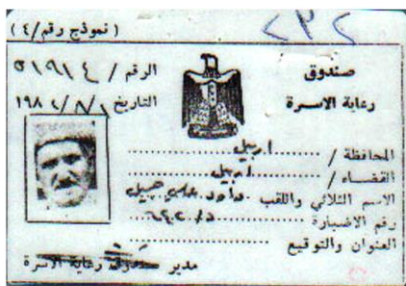 ( نموذج رقم /٤ )
٢٣٢
صندوق
رعاية الاسرة
الرقم / ٥١٩١٤
التاريخ
المحافظة / اربيل
القضاء / اربيل
الاسم الثلاثي واللقب داود
رقم الاضبارة
العنوان والتوقيع
مدير صندوق رعاية الاسرة